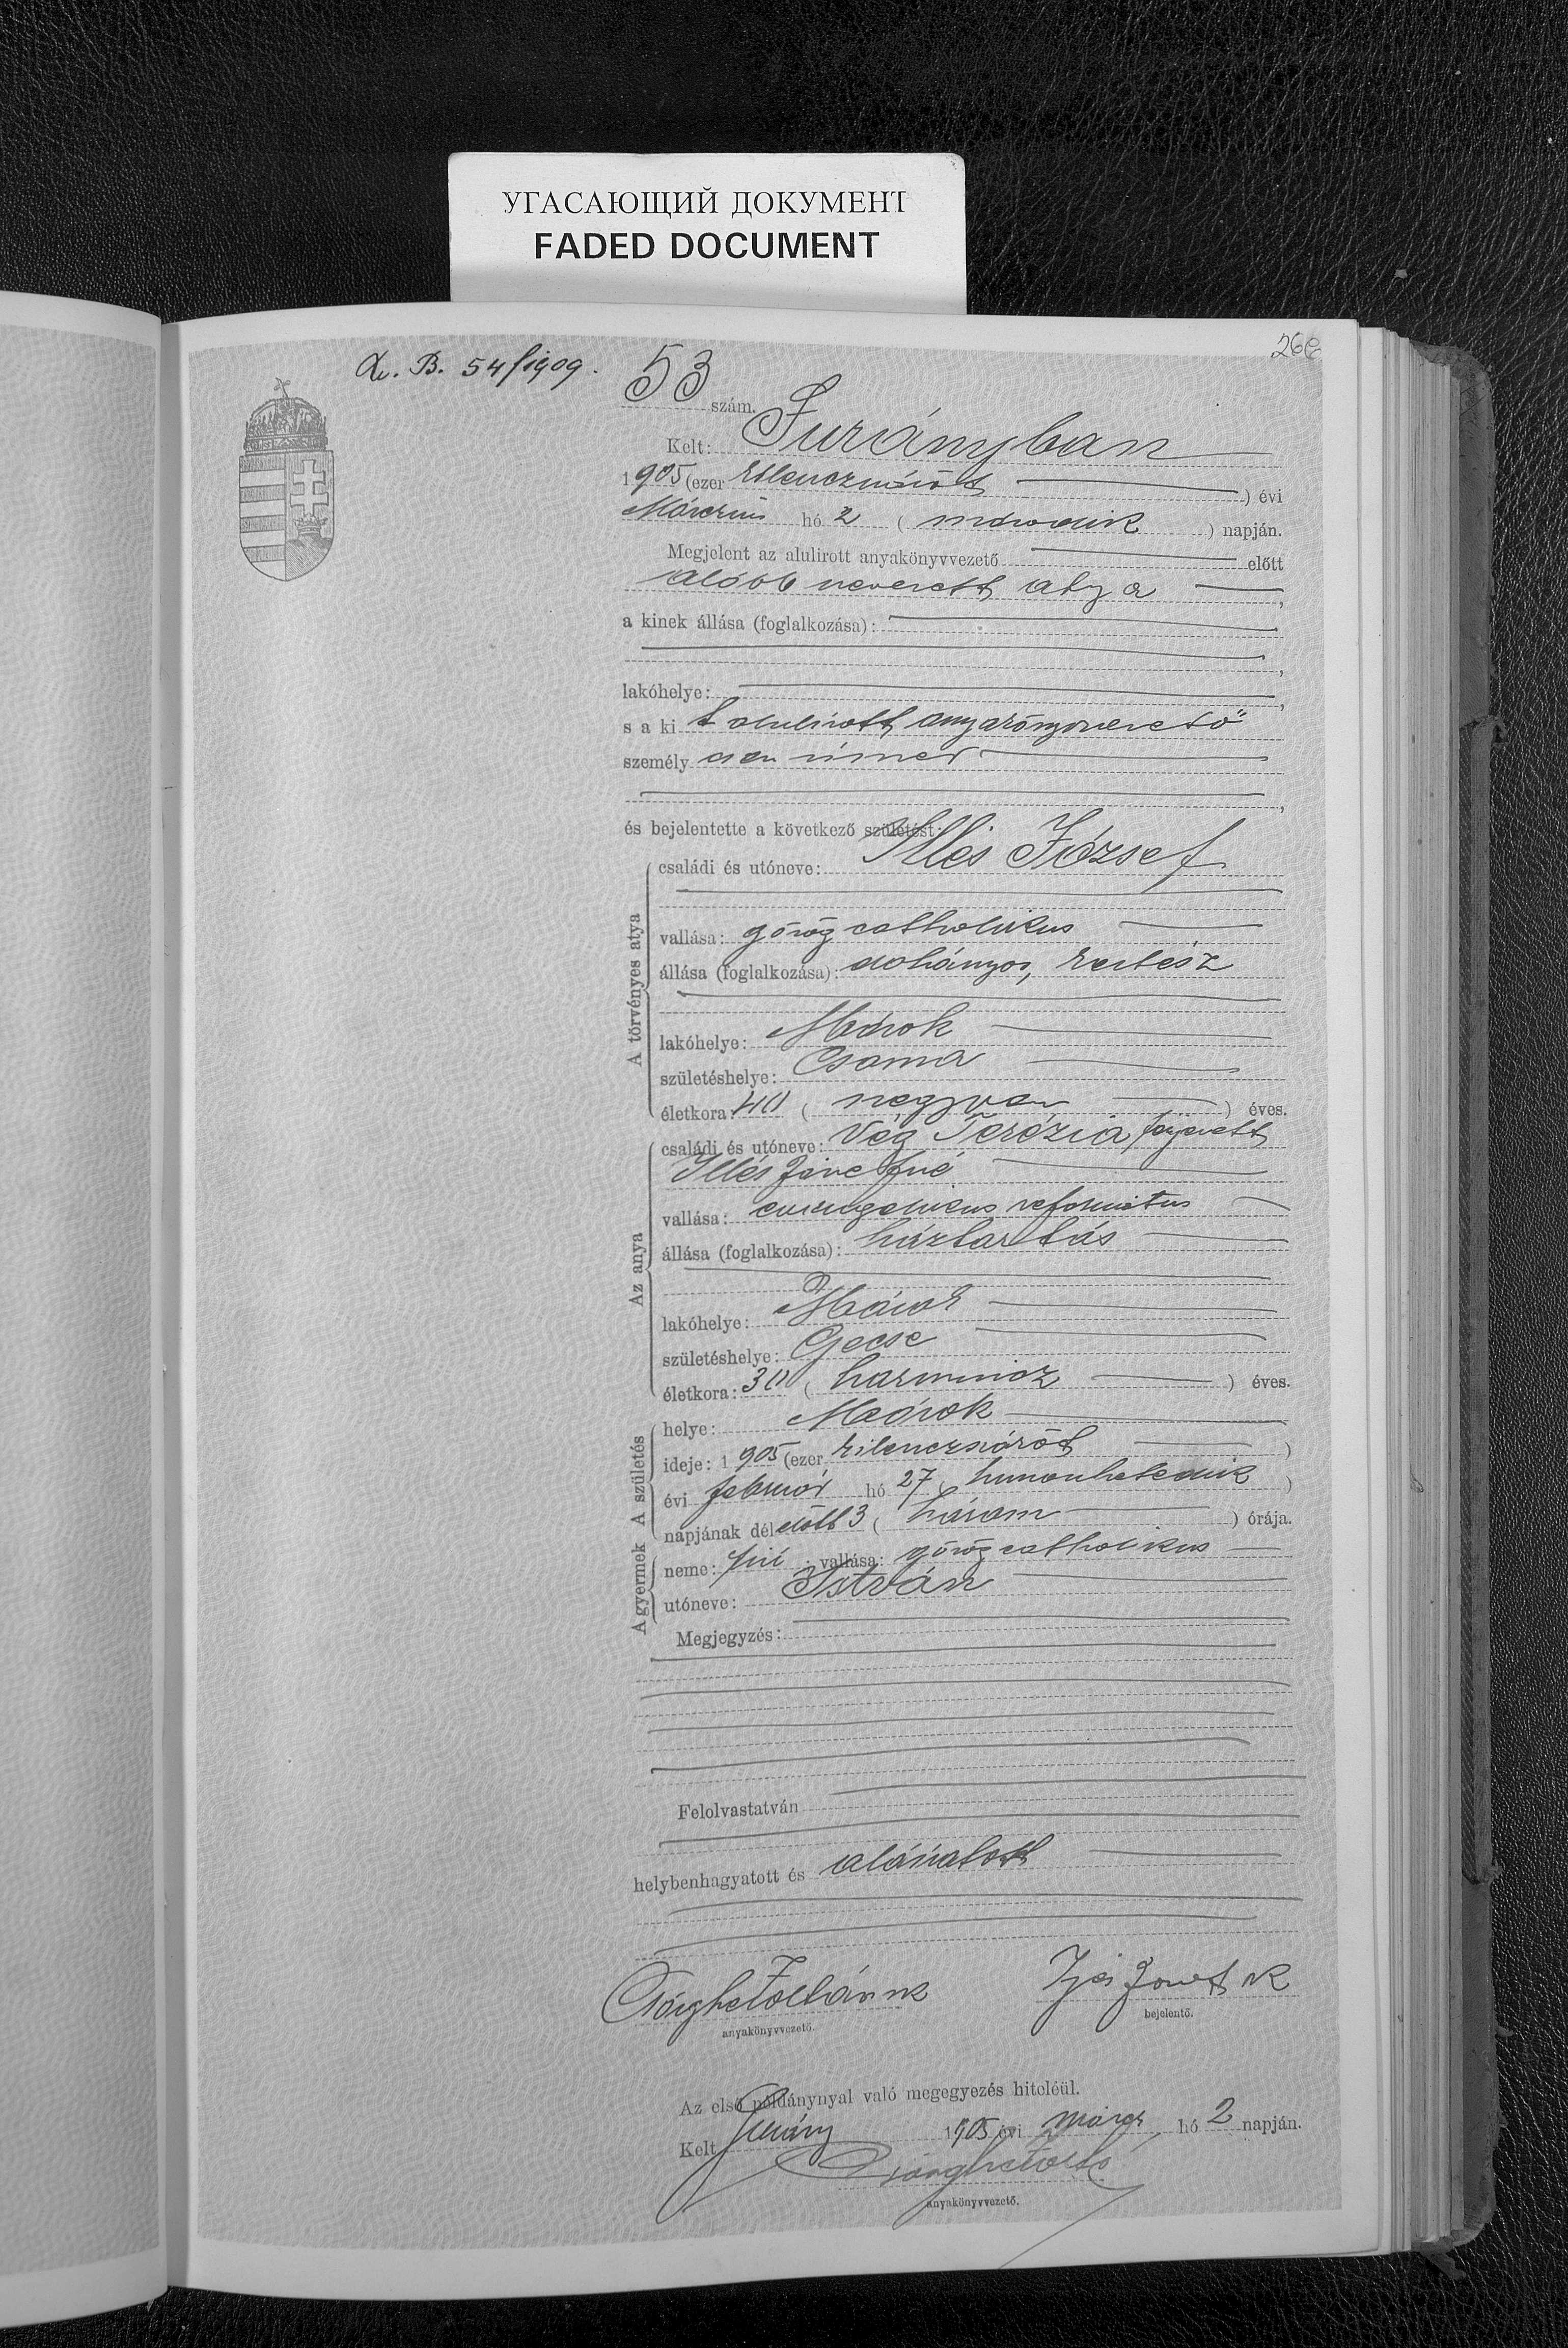 УГАСАЮЩИЙ ДОКУМЕНТ
FADED DOCUMENT
B. 54/1909.
53 szám.
Kelt:
1905 (ezer kilenczszázöt) évi
Márczius hó 2 (második) napján.
Megjelent az alulirott anyakönyvvezető előtt
alább nevezett atya,
a kinek állása (foglalkozása):
lakóhelye:
s a ki t alulirott anyakönyvvezető
személyesen ismer
és bejelentette a következő születést:
A törvényes atya
családi és utóneve: Illés József
vallása: görög catholikus
állása (foglalkozása): dohányos, kertész
lakóhelye: Mátyok
születéshelye: Csoma
életkora: 40 (negyven) éves.
Az anya
családi és utóneve: Vég Terézia, férjezett
Illés Józsefné
vallása: evangelikus református
állása (foglalkozása): háztartás
lakóhelye:
születéshelye: Gecse
életkora: 30 (harmincz) éves.
A születés
helye:
ideje: 1905 (ezer kilenczszázöt)
évi február hó 27 (huszonhetedik)
napjának délelőtt 3 (három) órája.
A gyermek
neme: fiú; vallása: görög catholikus
utóneve: István
Megjegyzés:
Felolvastatván
helybenhagyatott és aláiratott
anyakönyvvezető.
bejelentő.
Az első példánynyal való megegyezés hiteléül.
Kelt 1905 évi márcz hó 2 napján.
anyakönyvvezető.